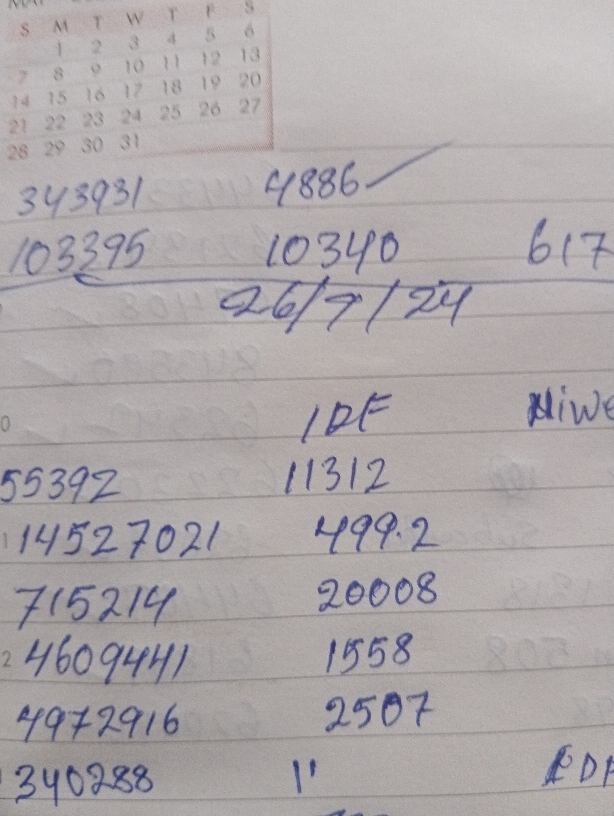 S M T W T F S
1 2 3 4 5 6
7 8 9 10 11 12 13
14 15 16 17 18 19 20
21 22 23 24 25 26 27
28 29 30 31
343931 4886
103395 10340 617
26/7/24
0 IDF
55392 11312
1 14527021 499.2
715214 20008
2 4609441 1558
4972916 2507
340288 11